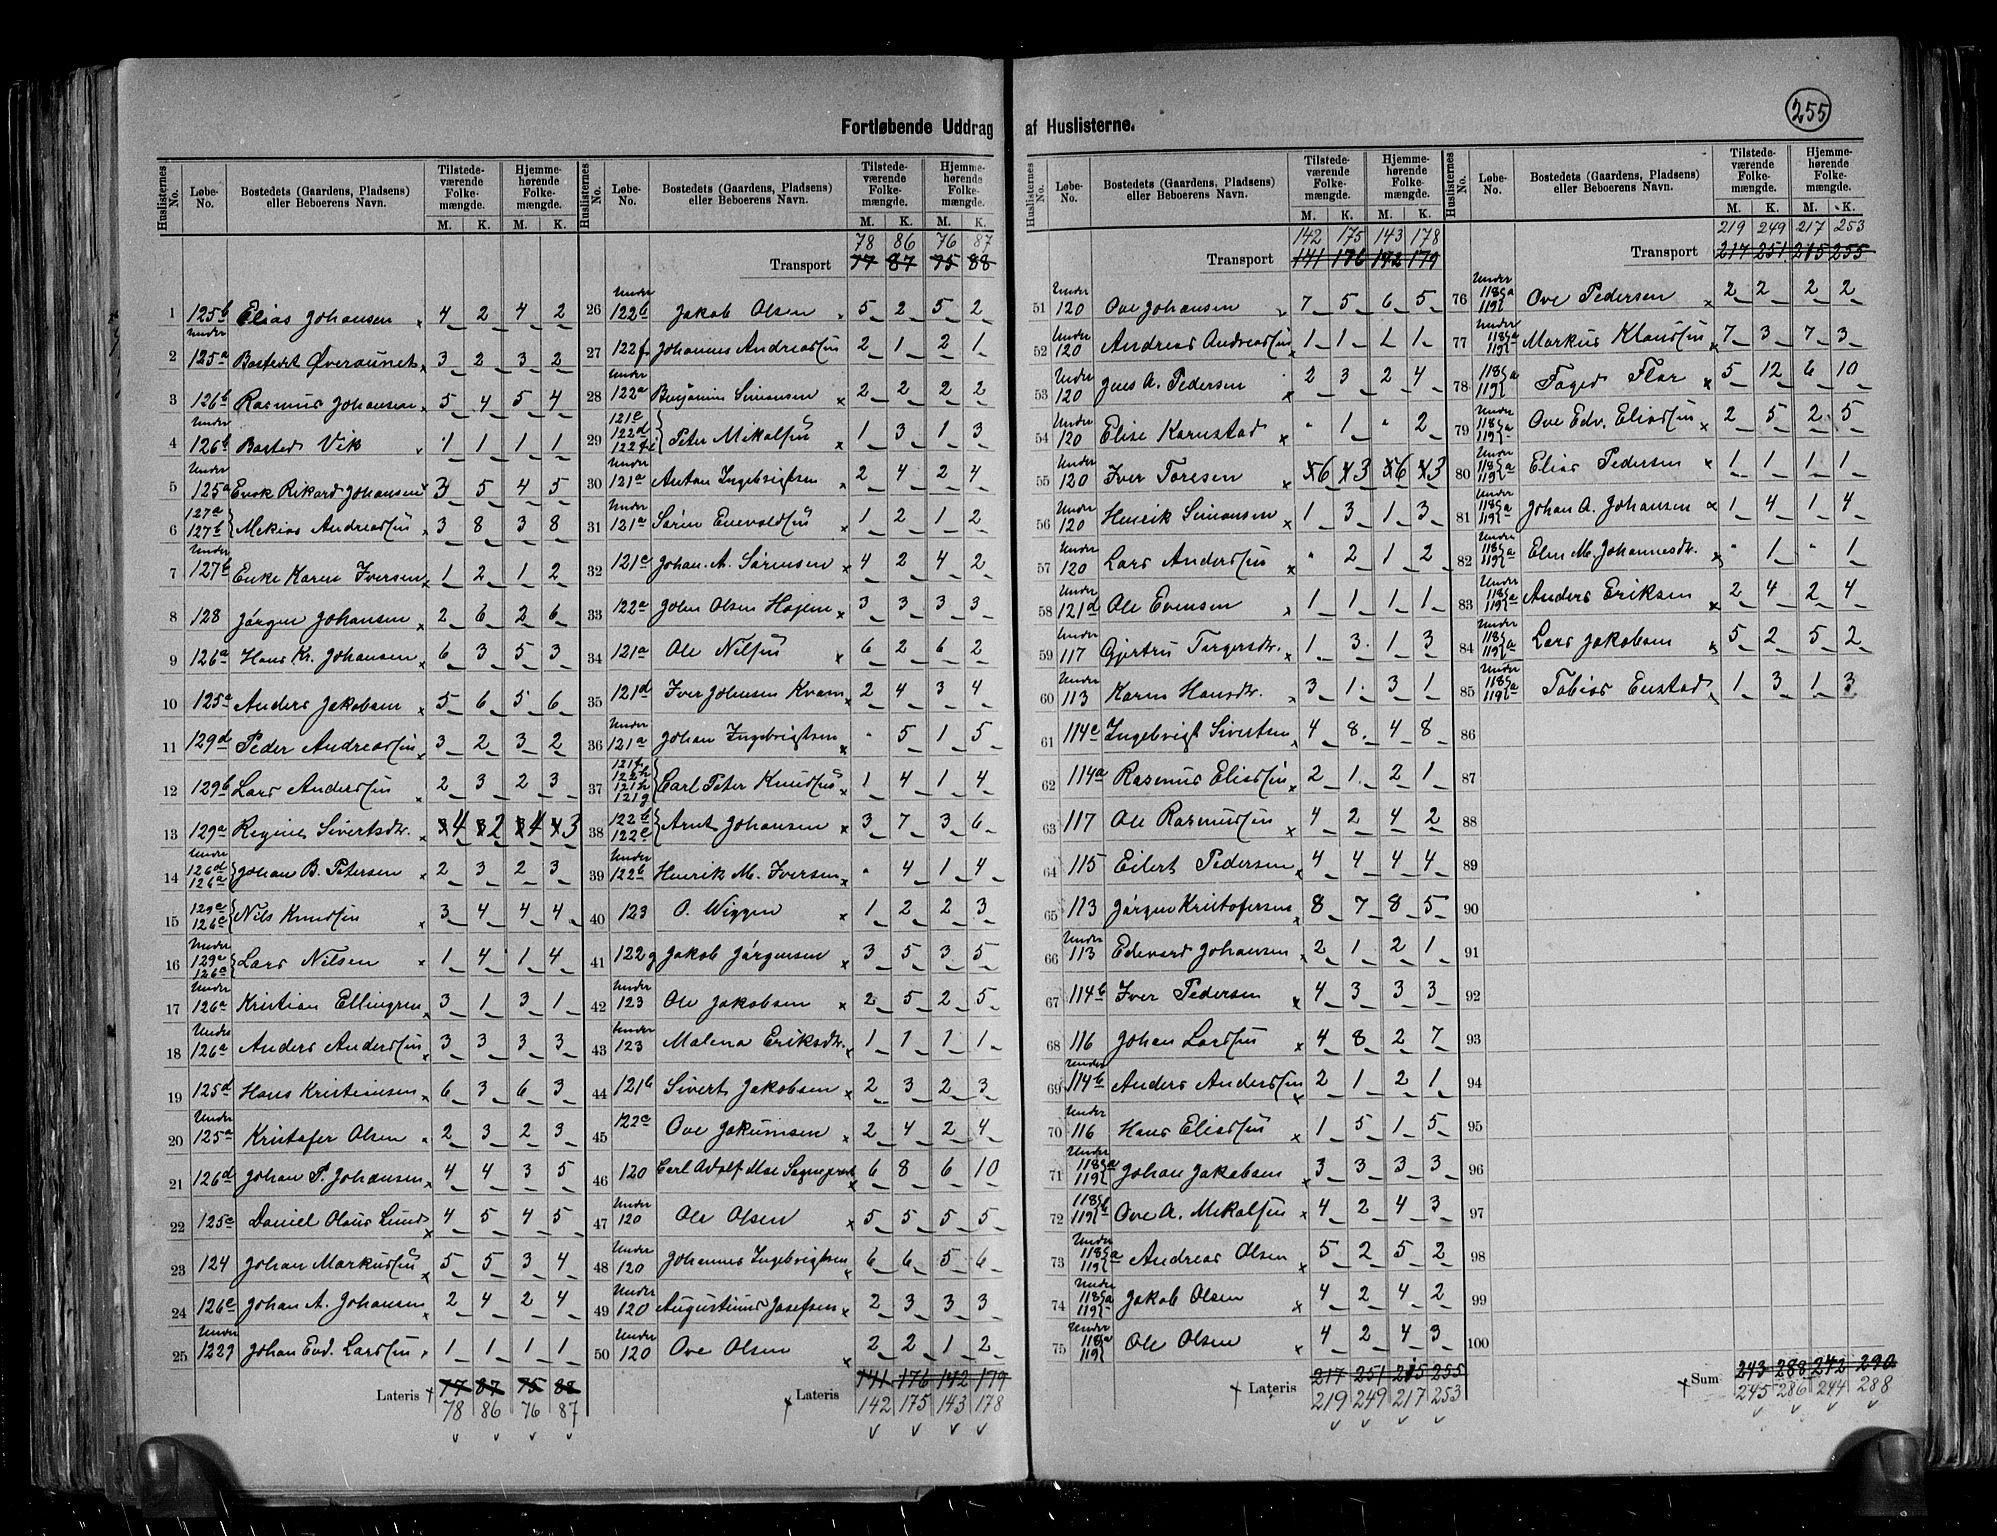 255
Fortløbende Uddrag af Huslisterne.
Huslisternes No. Løbe-No. Bostedets (Gaardens, Pladsens) eller Beboerens Navn. Tilstedeværende Folkemængde. M. K. Hjemmehørende Folkemængde. M. K.
1 125b Elias Johansen x 4 2 4 2
2 Under 125a Bostedet Øveraunet x 3 2 3 2
3 126b Rasmus Johansen x 5 4 5 4
4 Under 126b Bosted Vik x 1 1 1 1
5 Under 125a Enok Rikard Johansen x 3 5 4 5
6 127a 127b Mekias Andreassen 3 8 3 8
7 Under 127b Enke Karen Iversen x 1 2 1 2
8 128 Jørgen Johansen x 2 6 2 6
9 126a Hans Kr. Johansen x 6 3 5 3
10 125a Anders Jakobsen x 5 6 5 6
11 129d Peder Andreassen x 3 2 3 2
12 129b Lars Anderssen x 2 3 2 3
13 129a Regine Sivertsdr. 4 2 4 3
14 Under 126d 126a Johan B. Petersen x 2 3 2 3
15 Nils Knudsen x 3 4 4 4
16 Under Lars Nilsen x 1 4 1 4
17 Under 126a Kristian Ellingsen x 3 1 3 1
18 Under 126a Anders Anderssen x 3 3 3 3
19 125d Hans Kristiansen x 6 3 6 3
20 Under 125a Kristofer Olsen x 2 3 2 3
21 126d Johan P. Johansen x 4 4 3 5
22 125c Daniel Olaus Lund x 4 5 4 5
23 124 Johan Markussen x 5 5 3 4
24 126c Johan A. Johansen x 2 4 2 4
25 Under Johan Evd. Larssen x 1 1 1 1
Lateris x 77 87 75 88
78 86 76 87
Huslisternes No. Løbe-No. Bostedets (Gaardens, Pladsens) eller Beboerens Navn. Tilstedeværende Folkemængde. M. K. Hjemmehørende Folkemængde. M. K.
78 86 76 87
Transport 77 87 75 88
26 Under 122b Jakob Olsen x 5 2 5 2
27 122f Johannes Andreassen 2 1 2 1
28 Under 122a Benjamin Simonsen x 2 2 2 2
29 Peter Mikalsen x 1 3 1 3
30 Under 121a Anton Ingebrigtsen 2 4 2 4
31 Under 121a Søren Enevoldsen 1 2 1 2
32 121c Johan. A. Sørensen x 4 2 4 2
33 122a John Olsen Højem x 3 3 3 3
34 121a Ole Nilsen x 6 2 6 2
35 121d Iver Johnsen Kvam x 2 4 3 4
36 Under 121a Johan Ingebrigtsen " 5 1 5
37 Carl Peter Knudsen x 1 4 1 4
38 122b 122c Arnt Johansen x 3 7 3 6
39 Under 122b Henrik M. Iversen x " 4 1 4
40 123 O. Wiggen x 1 2 2 3
41 122g Jakob Jørgensen x 3 5 3 5
42 Under 123 Ole Jakobsen x 2 5 2 5
43 Under 123 Malena Eriksdr. x 1 1 1 1
44 121b Sivert Jakobsen x 2 3 2 3
45 122c Ove Jakumsen x 2 4 2 4
46 120 Carl Adolf Moe x 6 8 6 10
47 Under 120 Ole Olsen x 5 5 5 5
48 Under 120 Johannes Ingebrigtsen x 6 6 5 6
49 Under 120 Augustinus Josefsen x 2 3 3 3
50 Under 120 Ove Olsen x 2 2 1 2
x Lateris 141 176 142 179
142 175 143 178
Huslisternes No. Løbe-No. Bostedets (Gaardens, Pladsens) eller Beboerens Navn. Tilstedeværende Folkemængde. M. K. Hjemmehørende Folkemængde. M. K.
142 175 143 178
Transport 141 176 142 179
51 Under 120 Ove Johansen x 7 5 6 5
52 Under 120 Andreas Andreassen x 1 1 1 1
53 Under 120 Jens A. Pedersen x 2 3 2 4
54 Under 120 Elise Karnstad x " 1 " 2
55 Under 120 Iver Toresen x 6 3 6 3
56 Under 120 Henrik Simonsen x 1 3 1 3
57 Under 120 Lars Anderssen x " 2 1 2
58 Under 121d Ole Evensen x 1 1 1 1
59 Under 117 Gjertru Torgersdr. x 1 3 1 3
60 Under 113 Karen Hansdr. x 3 1 3 1
61 114c Ingebrigt Sivertsen x 4 8 4 8
62 114a Rasmus Eliassen x 2 1 2 1
63 117 Ole Rasmussen x 4 2 4 2
64 115 Eilert Pedersen x 4 4 4 4
65 113 Jørgen Kristofersen x 8 7 8 5
66 Under 113 Edevard Johansen x 2 1 2 1
67 114b Iver Pedersen x 4 3 3 3
68 116 Johan Larssen x 4 8 2 7
69 Under 114b Anders Anderssen x 2 1 2 1
70 Under 116 Hans Eliassen x 1 5 1 5
71 Under Johan Jakobsen x 3 3 3 3
72 Ove A. Mikalsen x 4 2 4 3
73 Under Andreas Olsen x 5 2 5 2
74 Under Jakob Olsen x 4 2 4 2
75 Under Ole Olsen x 4 2 4 3
x Lateris 217 251 215 255
219 249 217 253
Huslisternes No. Løbe-No. Bostedets (Gaardens, Pladsens) eller Beboerens Navn. Tilstedeværende Folkemængde. M. K. Hjemmehørende Folkemængde. M. K.
219 249 217 253
Transport 217 251 215 255
76 Under Ove Pedersen x 2 2 2 2
77 Under Markus Klaussen x 7 3 7 3
78 Faged Flor x 5 12 6 10
79 Under Ove Edv. Eliassen x 2 5 2 5
80 Under Elias Pedersen x 1 1 1 1
81 Under Johan A. Johansen x 1 4 1 4
82 Under Elen M. Johannesdr. x " 1 " 1
83 Under Anders Eriksen x 2 4 2 4
84 Under Lars Jakobsen x 5 2 5 2
85 Under Tobias Enstad x 1 3 1 3
86
87
88
89
90
91
92
93
94
95
96
97
98
99
100
x Sum 243 288 242 290
245 286 244 288